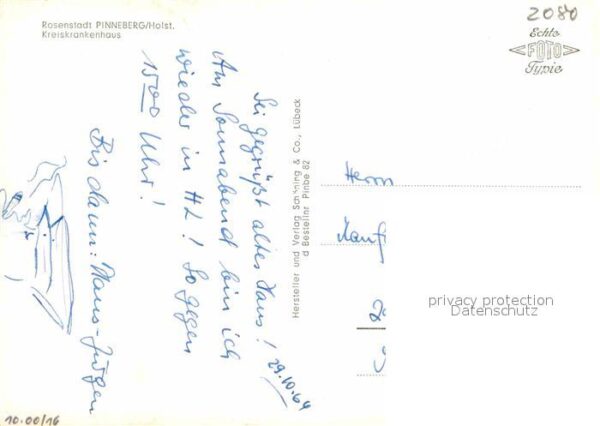 Rosenstadt PINNEBERG/Holst.
Kreiskrankenhaus
2080
Echte
FOTO
Typie
Sei gegrüßt altes Haus!
Am Sonnabend bin ich
wieder in HL! So gegen
1500 Uhr!
Bis dann: Hans-Jürgen
29.10.64
Hersteller und Verlag Schöning & Co., Lübeck
Bestellnr Pinbe 82
Herrn
privacy protection
Datenschutz
10.00/16